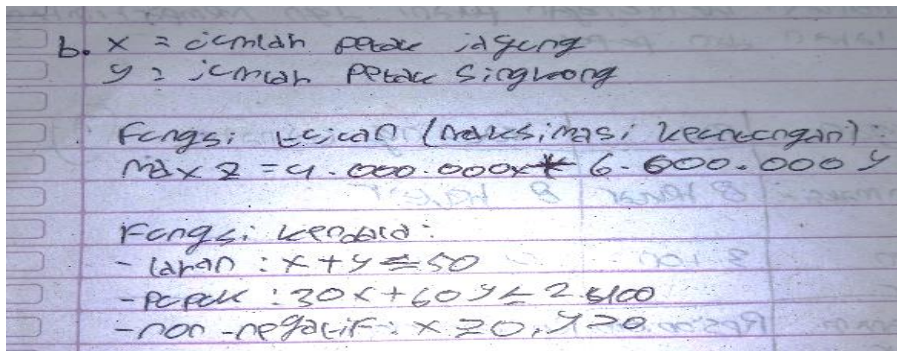 b. x = jumlah petak jagung
y = jumlah petak Singkong
Fungsi tujuan (maksimasi keuntungan) :
max z = 4.000.000x + 6.000.000 y
Fungsi kendala :
- lahan : x + y ≤ 50
- pupuk : 30x + 60y ≤ 2.400
- non-negatif : x ≥ 0, y ≥ 0